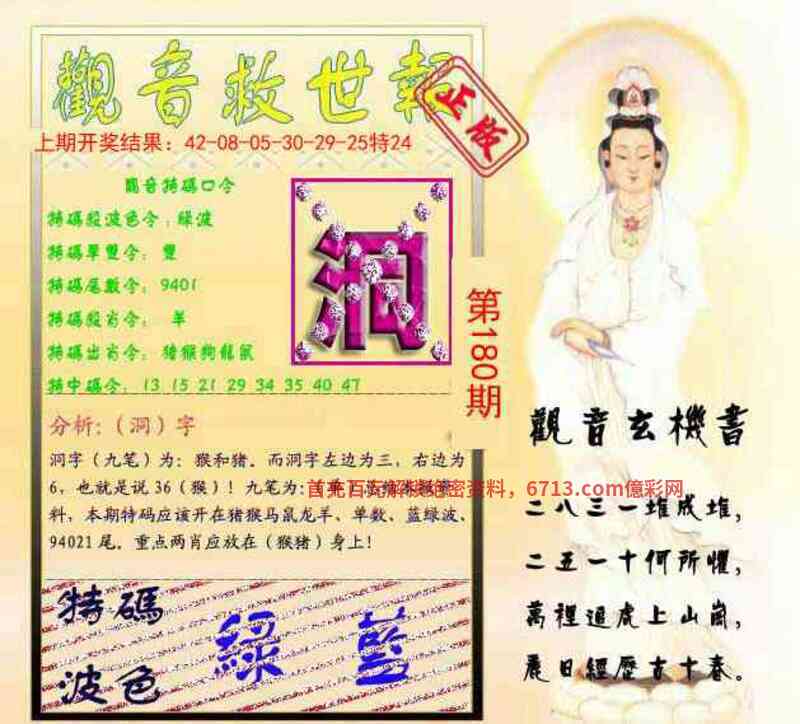 觀音救世報
正版
上期开奖结果：42-08-05-30-29-25特24
觀音特碼口令
特碼殺波色令：綠波
特碼單雙令：雙
特碼尾數令：9401
特碼殺肖令：羊
特碼出肖令：豬猴狗龍鼠
特中碼令：13 15 21 29 34 35 40 47
洞
第180期
分析:（洞）字
洞字（九笔）为：猴和猪。而洞字左边为三，右边为
6，也就是说36（猴）！九笔为：
首先百万解换绝密资料，6713.com億彩网
料，本期特码应该开在猪猴马鼠龙羊、单数、蓝绿波、
94021尾。重点两肖应放在（猴猪）身上！
特碼
波色
綠 藍
觀音玄機書
二八三一堆成堆，
二五一十何所懼，
萬裡追虎上山嵐，
麗日經歷古十春。